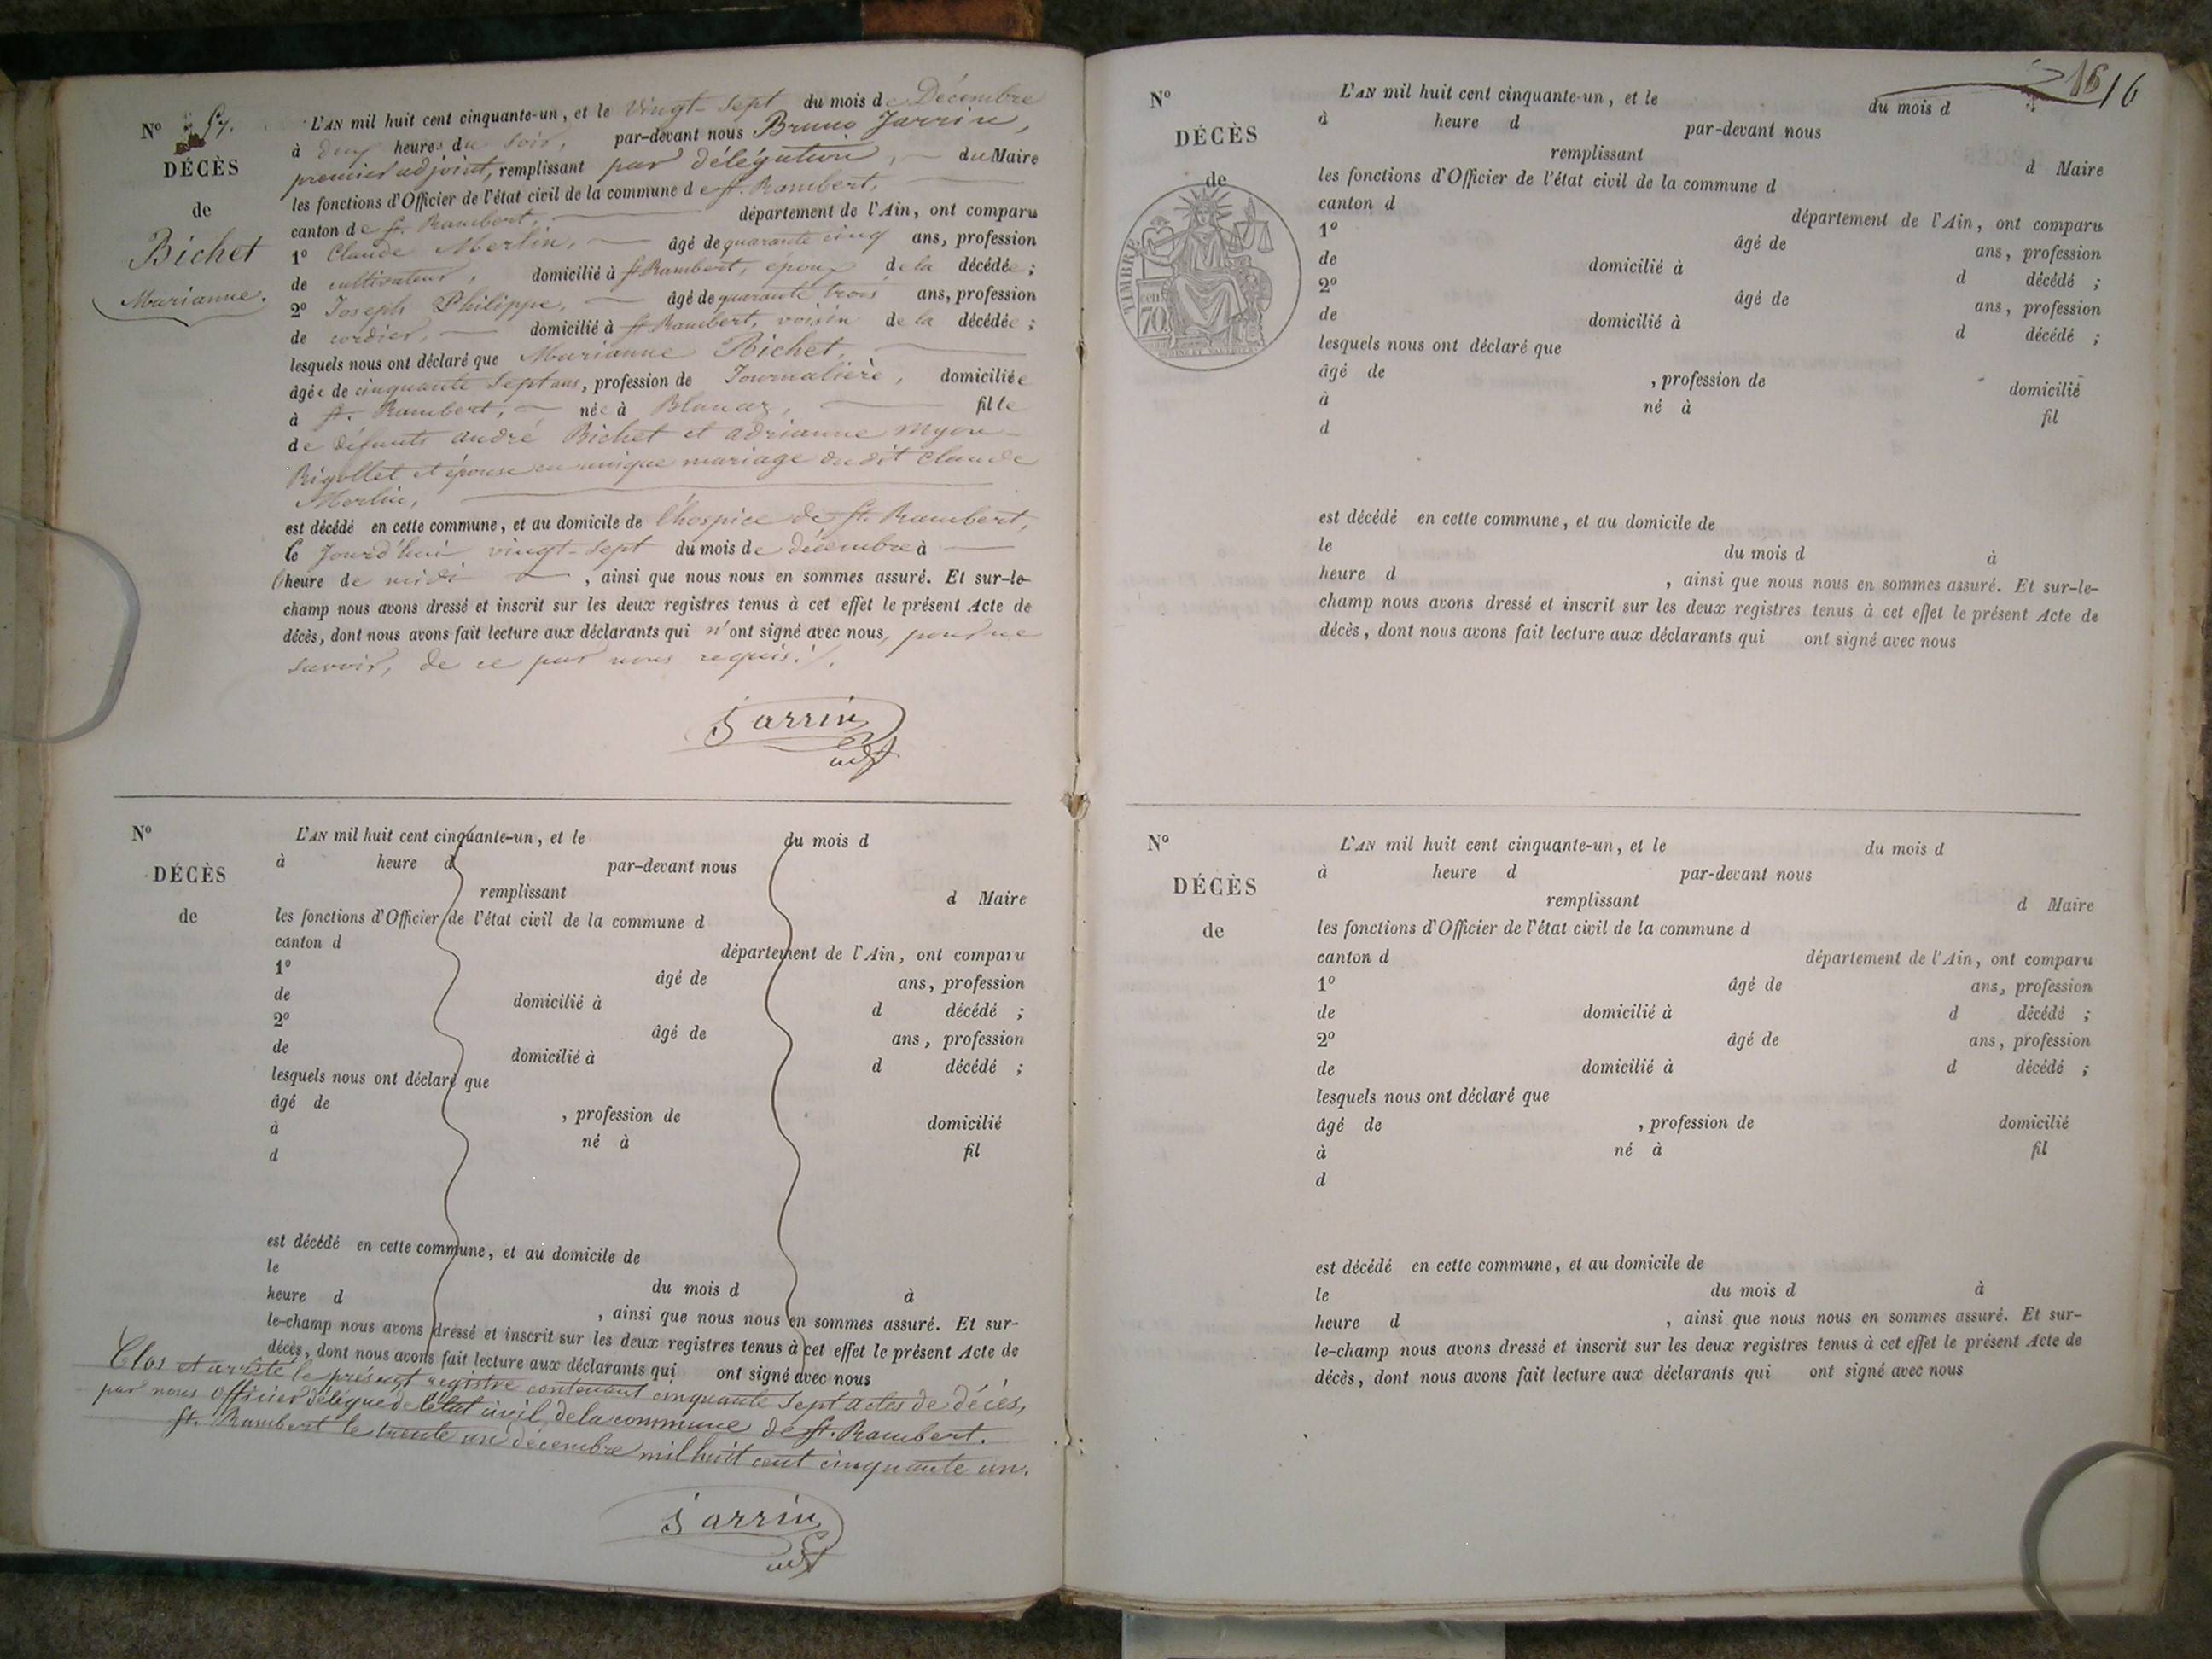 N° 57.
DÉCÈS
de
Bichet
Marianne.
L'AN mil huit cent cinquante-un, et le Vingt-Sept du mois de Décembre
à deux heures du soir, par-devant nous Bruno Jarrin,
premier adjoint, remplissant par délégation, du Maire
les fonctions d'Officier de l'état civil de la commune de St. Rambert,
canton de St. Rambert, département de l'Ain, ont comparu
1° Claude Merlin, âgé de quarante cinq ans, profession
de cultivateur, domicilié à St Rambert, époux de la décédée ;
2° Joseph Philippe, âgé de quarante trois ans, profession
de cordier, domicilié à St Rambert, voisin de la décédée ;
lesquels nous ont déclaré que Marianne Bichet,
âgée de cinquante Sept ans, profession de Journalière, domiciliée
à St. Rambert, née à Blanaz, fille
de défunts andré Bichet et adrianne Myon-
Rigollet et épouse en unique mariage dudit Claude
Merlin,
est décédé en cette commune, et au domicile de l'hospice de St. Rambert,
le Jourd'hui vingt-Sept du mois de décembre à
l'heure de midi, ainsi que nous nous en sommes assuré. Et sur-le-
champ nous avons dressé et inscrit sur les deux registres tenus à cet effet le présent Acte de
décès, dont nous avons fait lecture aux déclarants qui n'ont signé avec nous, pour ne
savoir, de ce par nous requis ./.
Jarrin
adjt
N°
DÉCÈS
de
L'AN mil huit cent cinquante-un, et le du mois d
à heure d par-devant nous
remplissant d Maire
les fonctions d'Officier de l'état civil de la commune d
canton d département de l'Ain, ont comparu
1° âgé de ans, profession
de domicilié à d décédé ;
2° âgé de ans, profession
de domicilié à d décédé ;
lesquels nous ont déclaré que
âgé de , profession de domicilié
à né à fil
d
est décédé en cette commune, et au domicile de
le du mois d à
heure d , ainsi que nous nous en sommes assuré. Et sur-
le-champ nous avons dressé et inscrit sur les deux registres tenus à cet effet le présent Acte de
décès, dont nous avons fait lecture aux déclarants qui ont signé avec nous
Clos et arrêté le présent registre contenant cinquante Sept actes de décès,
par nous officier délégué de l'état civil de la commune de St. Rambert.
St. Rambert le trente un décembre mil huit cent cinquante un.
Jarrin
adjt
16 16
N°
DÉCÈS
de
TIMBRE
70 cen
L'AN mil huit cent cinquante-un, et le du mois d
à heure d par-devant nous
remplissant d Maire
les fonctions d'Officier de l'état civil de la commune d
canton d département de l'Ain, ont comparu
1° âgé de ans, profession
de domicilié à d décédé ;
2° âgé de ans, profession
de domicilié à d décédé ;
lesquels nous ont déclaré que
âgé de , profession de domicilié
à né à fil
d
est décédé en cette commune, et au domicile de
le du mois d à
heure d , ainsi que nous nous en sommes assuré. Et sur-le-
champ nous avons dressé et inscrit sur les deux registres tenus à cet effet le présent Acte de
décès, dont nous avons fait lecture aux déclarants qui ont signé avec nous
N°
DÉCÈS
de
L'AN mil huit cent cinquante-un, et le du mois d
à heure d par-devant nous
remplissant d Maire
les fonctions d'Officier de l'état civil de la commune d
canton d département de l'Ain, ont comparu
1° âgé de ans, profession
de domicilié à d décédé ;
2° âgé de ans, profession
de domicilié à d décédé ;
lesquels nous ont déclaré que
âgé de , profession de domicilié
à né à fil
d
est décédé en cette commune, et au domicile de
le du mois d à
heure d , ainsi que nous nous en sommes assuré. Et sur-
le-champ nous avons dressé et inscrit sur les deux registres tenus à cet effet le présent Acte de
décès, dont nous avons fait lecture aux déclarants qui ont signé avec nous